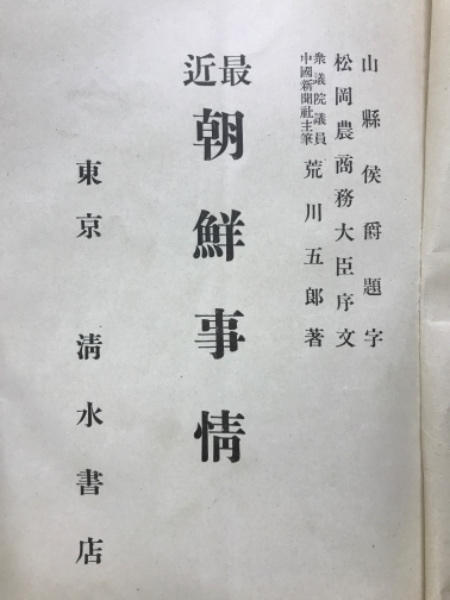 山縣侯爵題字
松岡農商務大臣序文
衆議院議員
中國新聞社主筆
荒川五郎著
最近
朝鮮事情
東京 淸水書店